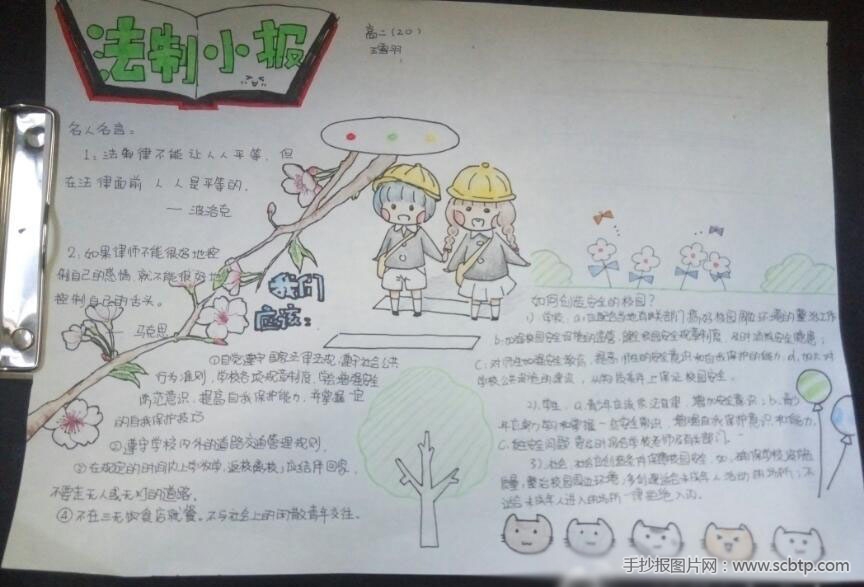 法制小报
高二（20）
王雪羽
名人名言：
1：法制律不能让人人平等，但
在法律面前人人是平等的。
— 波洛克
2，如果律师不能很好地控
制自己的感情，就不能很好地
控制自己的舌头。
— 马克思
我们
应该：
①自觉遵守国家法律法规，遵守社会公共
行为准则，学校各项规章制度，学会增强安全
防范意识，提高自我保护能力，并掌握一定
的自我保护技巧
②遵守学校内外的道路交通管理规则。
③在规定的时间内上学放学，返校离校，应结伴回家，
不要走无人或无灯的道路。
④不在三无饮食店就餐。不与社会上的闲散青年交往。
如何创造安全的校园？
1）学校，a：应配合当地有关部门搞好校园周边环境的整治工作
b.加强校园安全设施的
校园安全规章制度，及时消除安全隐患；
C：对师生加强安全教育，提高师生的安全意识和自我保护的能力，d，加大对
学校公共设施的建设，从物质条件上保证校园安全。
2），学生，a.青少年应该学法自律，增加安全意识；b.青少
年应努力学习和掌握一些安全常识，增强自我保护意识和能力，
C.把安全问题要及时报告学校老师及有关部门。
3）社会，社会应创造条件保障校园安全，如，确保学校
质量，整治校园周边环境，多创建适合未成年人活动的场所；不
适合未成年人进入的场所一律拒绝入内。
手抄报图片网：www.scbtp.com